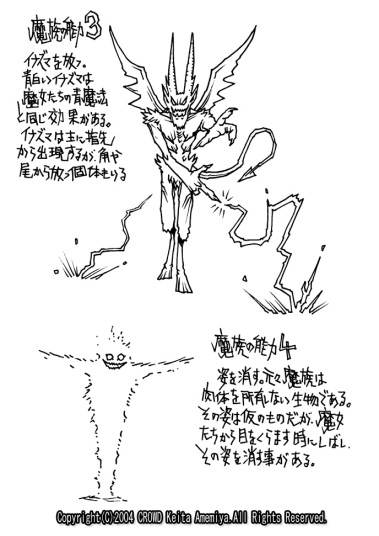 魔族の能力3
イナズマを放つ。
青白いイナズマは
魔女たちの青魔法
と同じ効果がある。
イナズマは主に指先
から出現するが、角や
尾から放つ個体もいる
魔族の能力4
姿を消す。元々魔族は
肉体を所有しない生物である。
その姿は仮のものだが、魔女
たちから目をくらます時にしばし
その姿を消す事がある。
Copyright(C)2004 CROWD Keita Amemiya.All Rights Reserved.